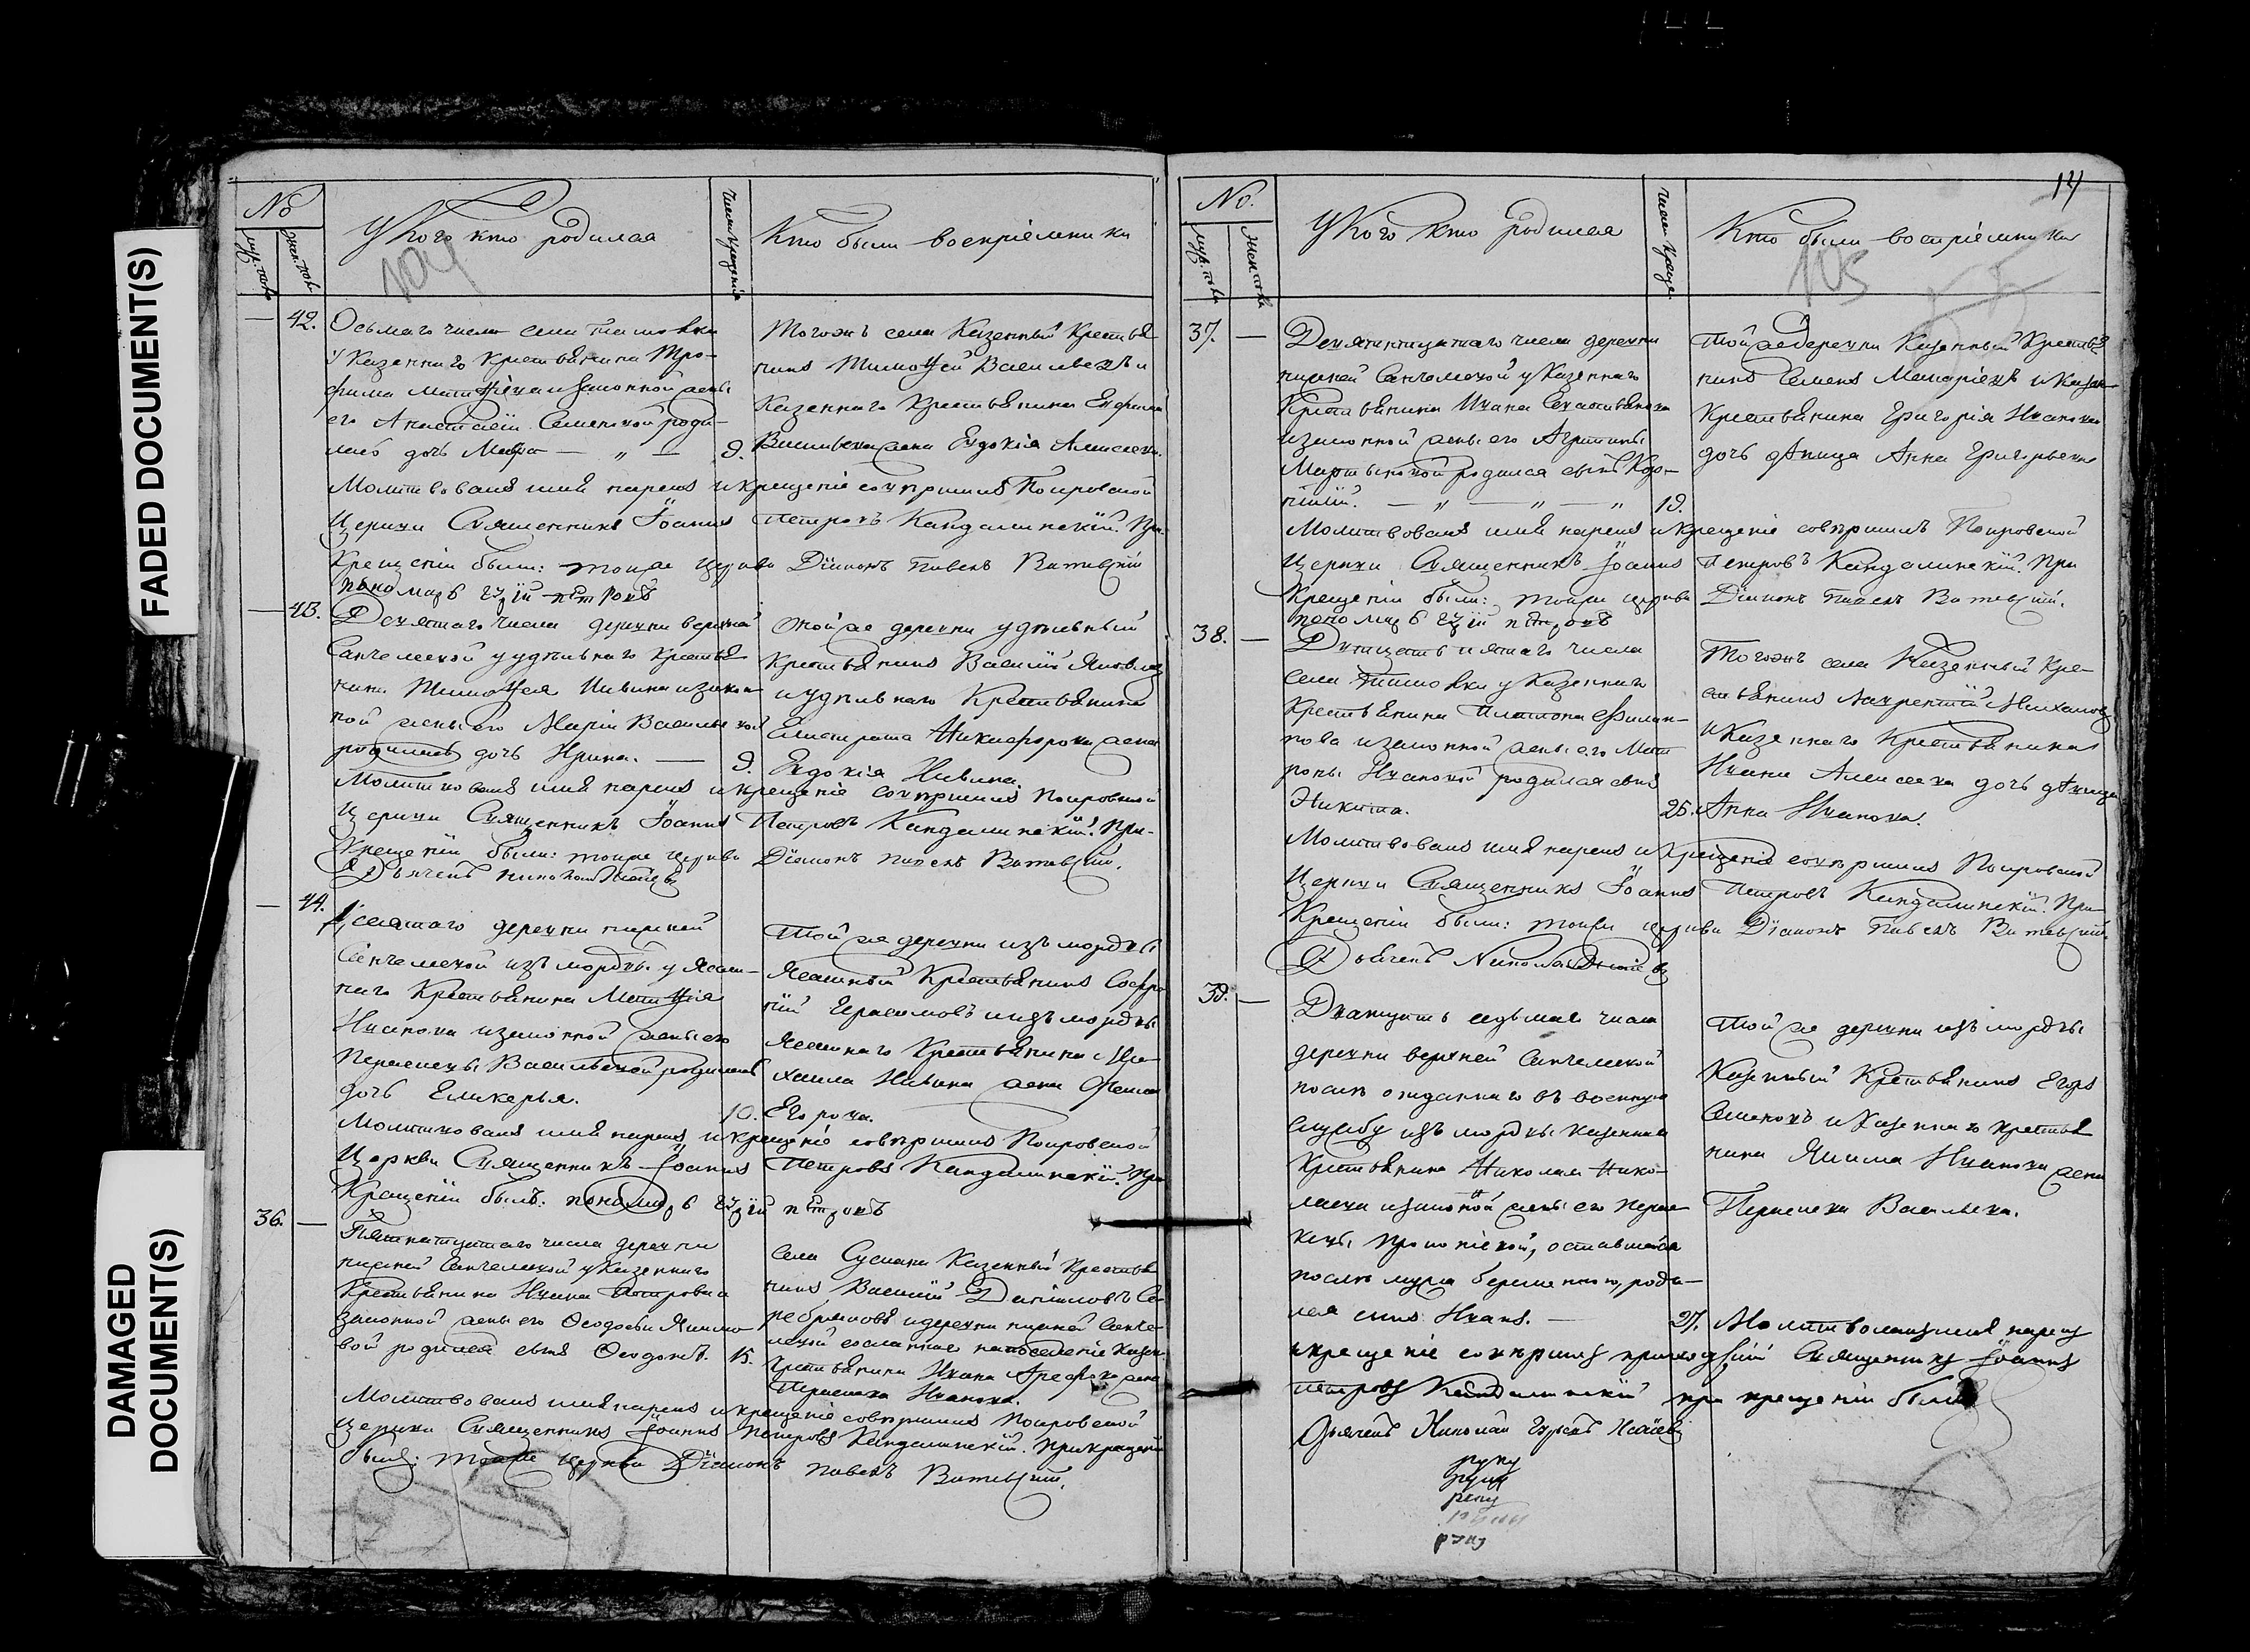 FADED DOCUMENT(S)
DAMAGED
DOCUMENT(S)
№
муж. пола
жен. пол.
У кого кто родился
104
Числа крещенія
Кто были воспріемники
42.
Осьмаго числа села
у Казеннаго Крестьянина Тро-
фима Матѳѣева и законной жены
его Анастасіи Семеновой роди-
лась дочь Мавра — „ —
9.
Тогожъ села Казенный Крестья
нинъ Тимоѳей Васильевъ и
Казеннаго Крестьянина
Васильева жена Евдокія Алексѣева.
Молитвовалъ имя нарекъ и крещеніе совершилъ Покровской
Церкви Священникъ Іоаннъ Петровъ Кандалинскій. При
Крещеніи были: тойже церкви Діаконъ Павелъ
пономарь Петровъ
43.
Девятаго числа деревни верхней
Санчелеевой у удѣльнаго крестья
нина Тимоѳея Ивлина и закон
ной жены его Маріи Васильевой
родилась дочь Ирина. —
9.
тойже деревни удѣльный
Крестьянинъ Василій Яковлевъ
и удѣльнаго Крестьянина
Елистрата Никифорова жена
Евдокія Ивлина.
Молитвовалъ имя нарекъ и крещеніе совершилъ Покровской
Церкви Священникъ Іоаннъ Петровъ Кандалинскій. При
Крещеніи были: тойже церкви Діаконъ Павелъ
Дьячекъ Николай Исаевъ
44.
Десятаго деревни нижней
Санчелеевой изъ мордвы у Ясаш-
наго Крестьянина Матѳѣя
Иванова и законной жены его
Пераскевы Васильевой родилась
дочь Гликерья.
10.
Тойже деревни изъ мордвы
Ясашный Крестьянинъ Софро
ній Герасимовъ и изъ мордвы
Ясашнаго Крестьянина Ми
хаила Ивлина жена
Егорова.
Молитвовалъ имя нарекъ и крещеніе совершилъ Покровской
Церкви Священникъ Іоаннъ Петровъ Кандалинскій. При
Крещеніи былъ: пономарь Петровъ
36.
Пятнатцатаго числа деревни
нижней Санчелеевой у Казеннаго
Крестьянина Ивана Петрова и
законной жены его Ѳеодосьи Яким
вой родился сынъ Ѳеодотъ.
15.
Села Сускана Казенный Крестья
нинъ Василій Даниловъ Се
ребряковъ и деревни нижней Санче
леевой на поселеніе Казен.
Крестьянина Ивана Арефьева жена
Пераскева Иванова.
Молитвовалъ имя нарекъ и крещеніе совершилъ Покровской
Церкви Священникъ Іоаннъ Петровъ Кандалинскій. При крещеніи
былъ: тойже церкви Діаконъ Павелъ
14
№.
муж. пола
жен. пола
У кого кто родился
Числа креще.
Кто были воспріемники
105
37.
Девятнатцатаго числа деревни
нижней Санчелеевой у Казеннаго
Крестьянина Ивана Севастьянова
и законной жены его Агрипины
Мартыновой родился сынъ Кор-
нилій. — „ — „ — „
19.
Тойже деревни Казенный Крестья
нинъ Семенъ и Казен
Крестьянина Григорія Иванова
дочь дѣвица Анна Григорьева
Молитвовалъ имя нарекъ и крещеніе совершилъ Покровской
Церкви Священникъ Іоаннъ Петровъ Кандалинскій. При
Крещеніи были: тойже церкви Діаконъ Павелъ
пономарь Петровъ
38.
Дватцать пятаго числа
села у Казеннаго
Крестьянина Платона Филип-
пова и законной жены его Мат
роны Ивановой родился сынъ
Никита.
25.
Тогожъ села Казенный Кре-
стьянинъ Лаврентій Михайлов
и Казеннаго Крестьянина
Ивана Алексѣева дочь дѣвица
Анна Иванова.
Молитвовалъ имя нарекъ и крещеніе совершилъ Покровской
Церкви Священникъ Іоаннъ Петровъ Кандалинскій. При
Крещеніи были: тойже церкви Діаконъ Павелъ
Дьячекъ Николай Исаевъ
39.
Дватцать седьмаго числа
деревни верхней Санчелеевой
послѣ отданнаго въ военную
службу изъ мордвы казеннаго
Крестьянина Николая Нико-
лаева и законной жены его Перас
кевы Прокопіевой, оставшейся
послѣ мужа беременною, роди-
лся сынъ Иванъ. —
27.
Тойже деревни изъ мордвы
Казенный Крестьянинъ Егоръ
Семеновъ и Казеннаго крестья
нина Якима Иванова жена
Пераскева Васильева.
Молитвовалъ имя нарекъ
и крещеніе совершилъ приходскій Священникъ Іоаннъ
Петровъ Кандалинскій при крещеніи были
Дьячекъ Николай Исаевъ
руку
руку
руку
руку